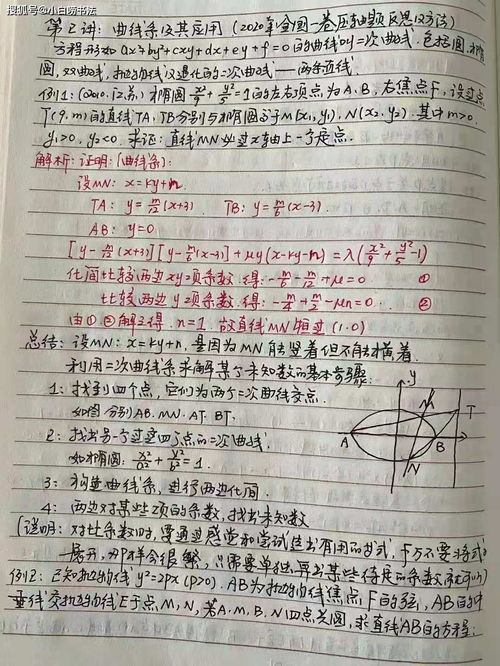 搜狐号@小白聊书法
第2讲:曲线系及其应用(2020年全国一卷压轴题反思12方法)
方程形如ax²+by²+cxy+dx+ey+f=0的曲线叫二次曲线.包括圆,椭
圆,双曲线,抛物线以及退化的二次曲线——两条直线.
例1:(2010.江苏)椭圆x²/9+y²/5=1的左右顶点为A.B,右焦点F,设过点
T(9,m)的直线TA,TB分别与椭圆交于M(x₁,y₁),N(x₂,y₂).其中m>0.
y₁>0,y₂<0.求证:直线MN必过x轴上一定点.
解析:证明:(曲线系):
设MN: x=ky+n.
TA: y=m/12(x+3). TB: y=m/6(x-3).
AB: y=0
[y-m/12(x+3)][y-m/6(x-3)]+μy(x-ky-n)=λ(x²/9+y²/5-1)
化简比较两边xy项系数.得:-m/6-m/12+μ=0 ①
比较两边y项系数.得:-m/4+m/2-μn=0. ②
由①②解之得.n=1.故直线MN恒过(1.0)
总结:设MN:x=ky+n,是因为MN能竖着但不能横着.
利用二次曲线系求解某个未知数的基本步骤:
1:找到四个点,它们为两个二次曲线交点.
如图分别AB.MN.AT.BT.
2:找出另一个过这四个点的二次曲线.
如椭圆:x²/a²+y²/b²=1.
3:构建曲线系,进行两边化简.
4:两边对某些项的系数,找出未知数
(说明:对比系数时,要通过感觉和尝试找出有用的式,千万不要将式子
一展开,那样会很繁,只需要单独算出某些待定的系数就可以)
例2:已知抛物线y²=2px(p>0).AB为抛物线焦点F的弦,AB的中
垂线交抛物线E于点M,N,若A.M.B.N四点共圆,求直线AB的方程:
y
M
T
A
B
x
N